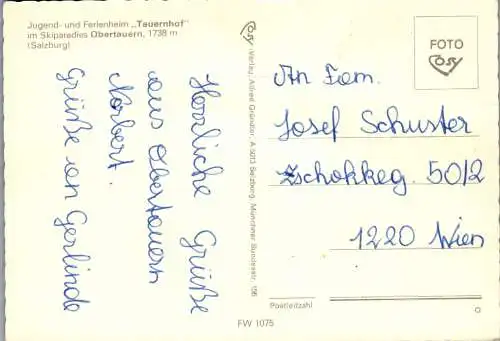 Jugend- und Ferienheim „Tauernhof"
im Skiparadies Obertauern, 1738 m
(Salzburg)
Herzliche Grüße
aus Obertauern
Norbert.
Grüße an Gerlinde
Cosy - Verlag, Alfred Gründler, A 5013 Salzburg, Münchner Bundesstr. 156
FOTO
COSY
An Fam.
Josef Schuster
Zschokkeg. 50/2
1220 Wien
Postleitzahl
FW 1075